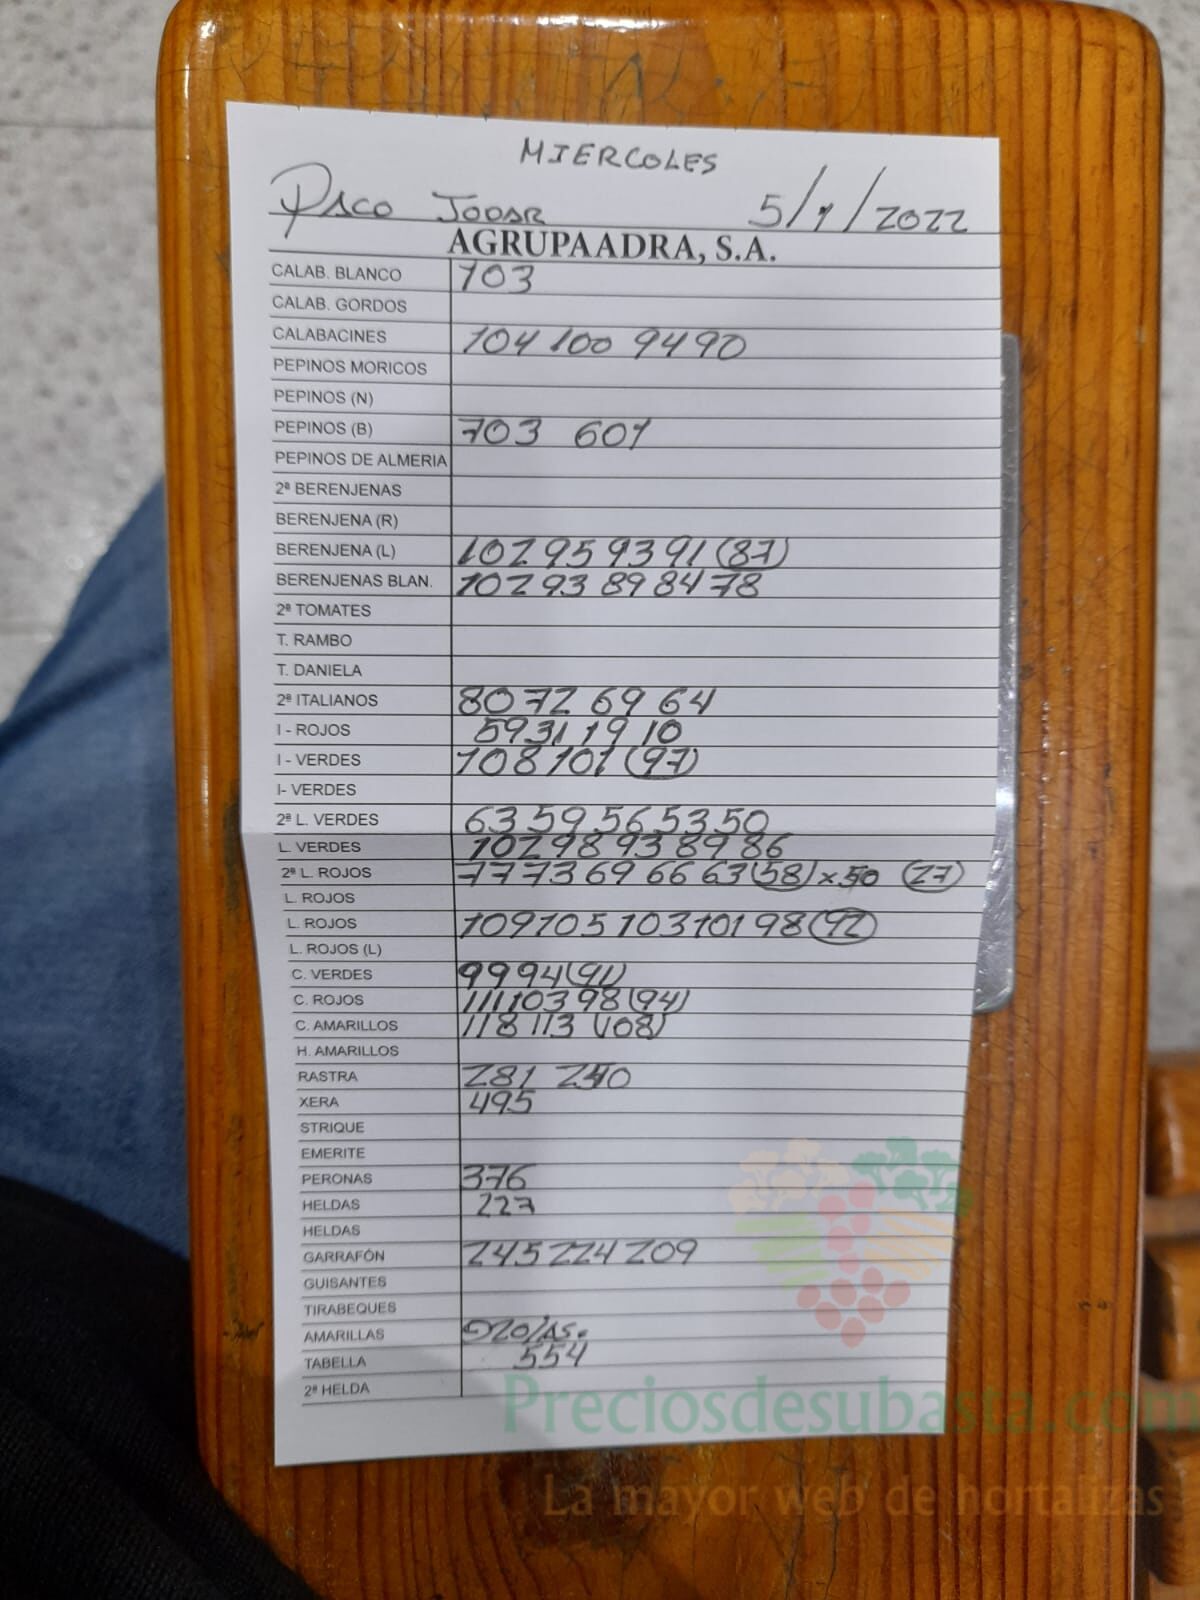 MIERCOLES
PACO JODAR 5/1/2022
AGRUPAADRA, S.A.
CALAB. BLANCO 103
CALAB. GORDOS
CALABACINES 104 100 94 90
PEPINOS MORICOS
PEPINOS (N)
PEPINOS (B) 703 601
PEPINOS DE ALMERIA
2ª BERENJENAS
BERENJENA (R)
BERENJENA (L) 102 95 93 91 (87)
BERENJENAS BLAN. 102 93 89 84 78
2ª TOMATES
T. RAMBO
T. DANIELA
2ª ITALIANOS 80 72 69 64
I - ROJOS 59 31 19 10
I - VERDES 108 101 (97)
I- VERDES
2ª L. VERDES 63 59 56 53 50
L. VERDES 102 98 93 89 86
2ª L. ROJOS 77 73 69 66 63 (58) x 50 (27)
L. ROJOS
L. ROJOS 109 105 103 101 98 (92)
L. ROJOS (L)
C. VERDES 99 94 (91)
C. ROJOS 111 103 98 (94)
C. AMARILLOS 118 113 (108)
H. AMARILLOS
RASTRA 281 240
XERA 495
STRIQUE
EMERITE
PERONAS 376
HELDAS 227
HELDAS
GARRAFÓN 245 224 209
GUISANTES
TIRABEQUES
AMARILLAS
TABELLA 554
2ª HELDA
Preciosdesubasta.com
La mayor web de hortalizas